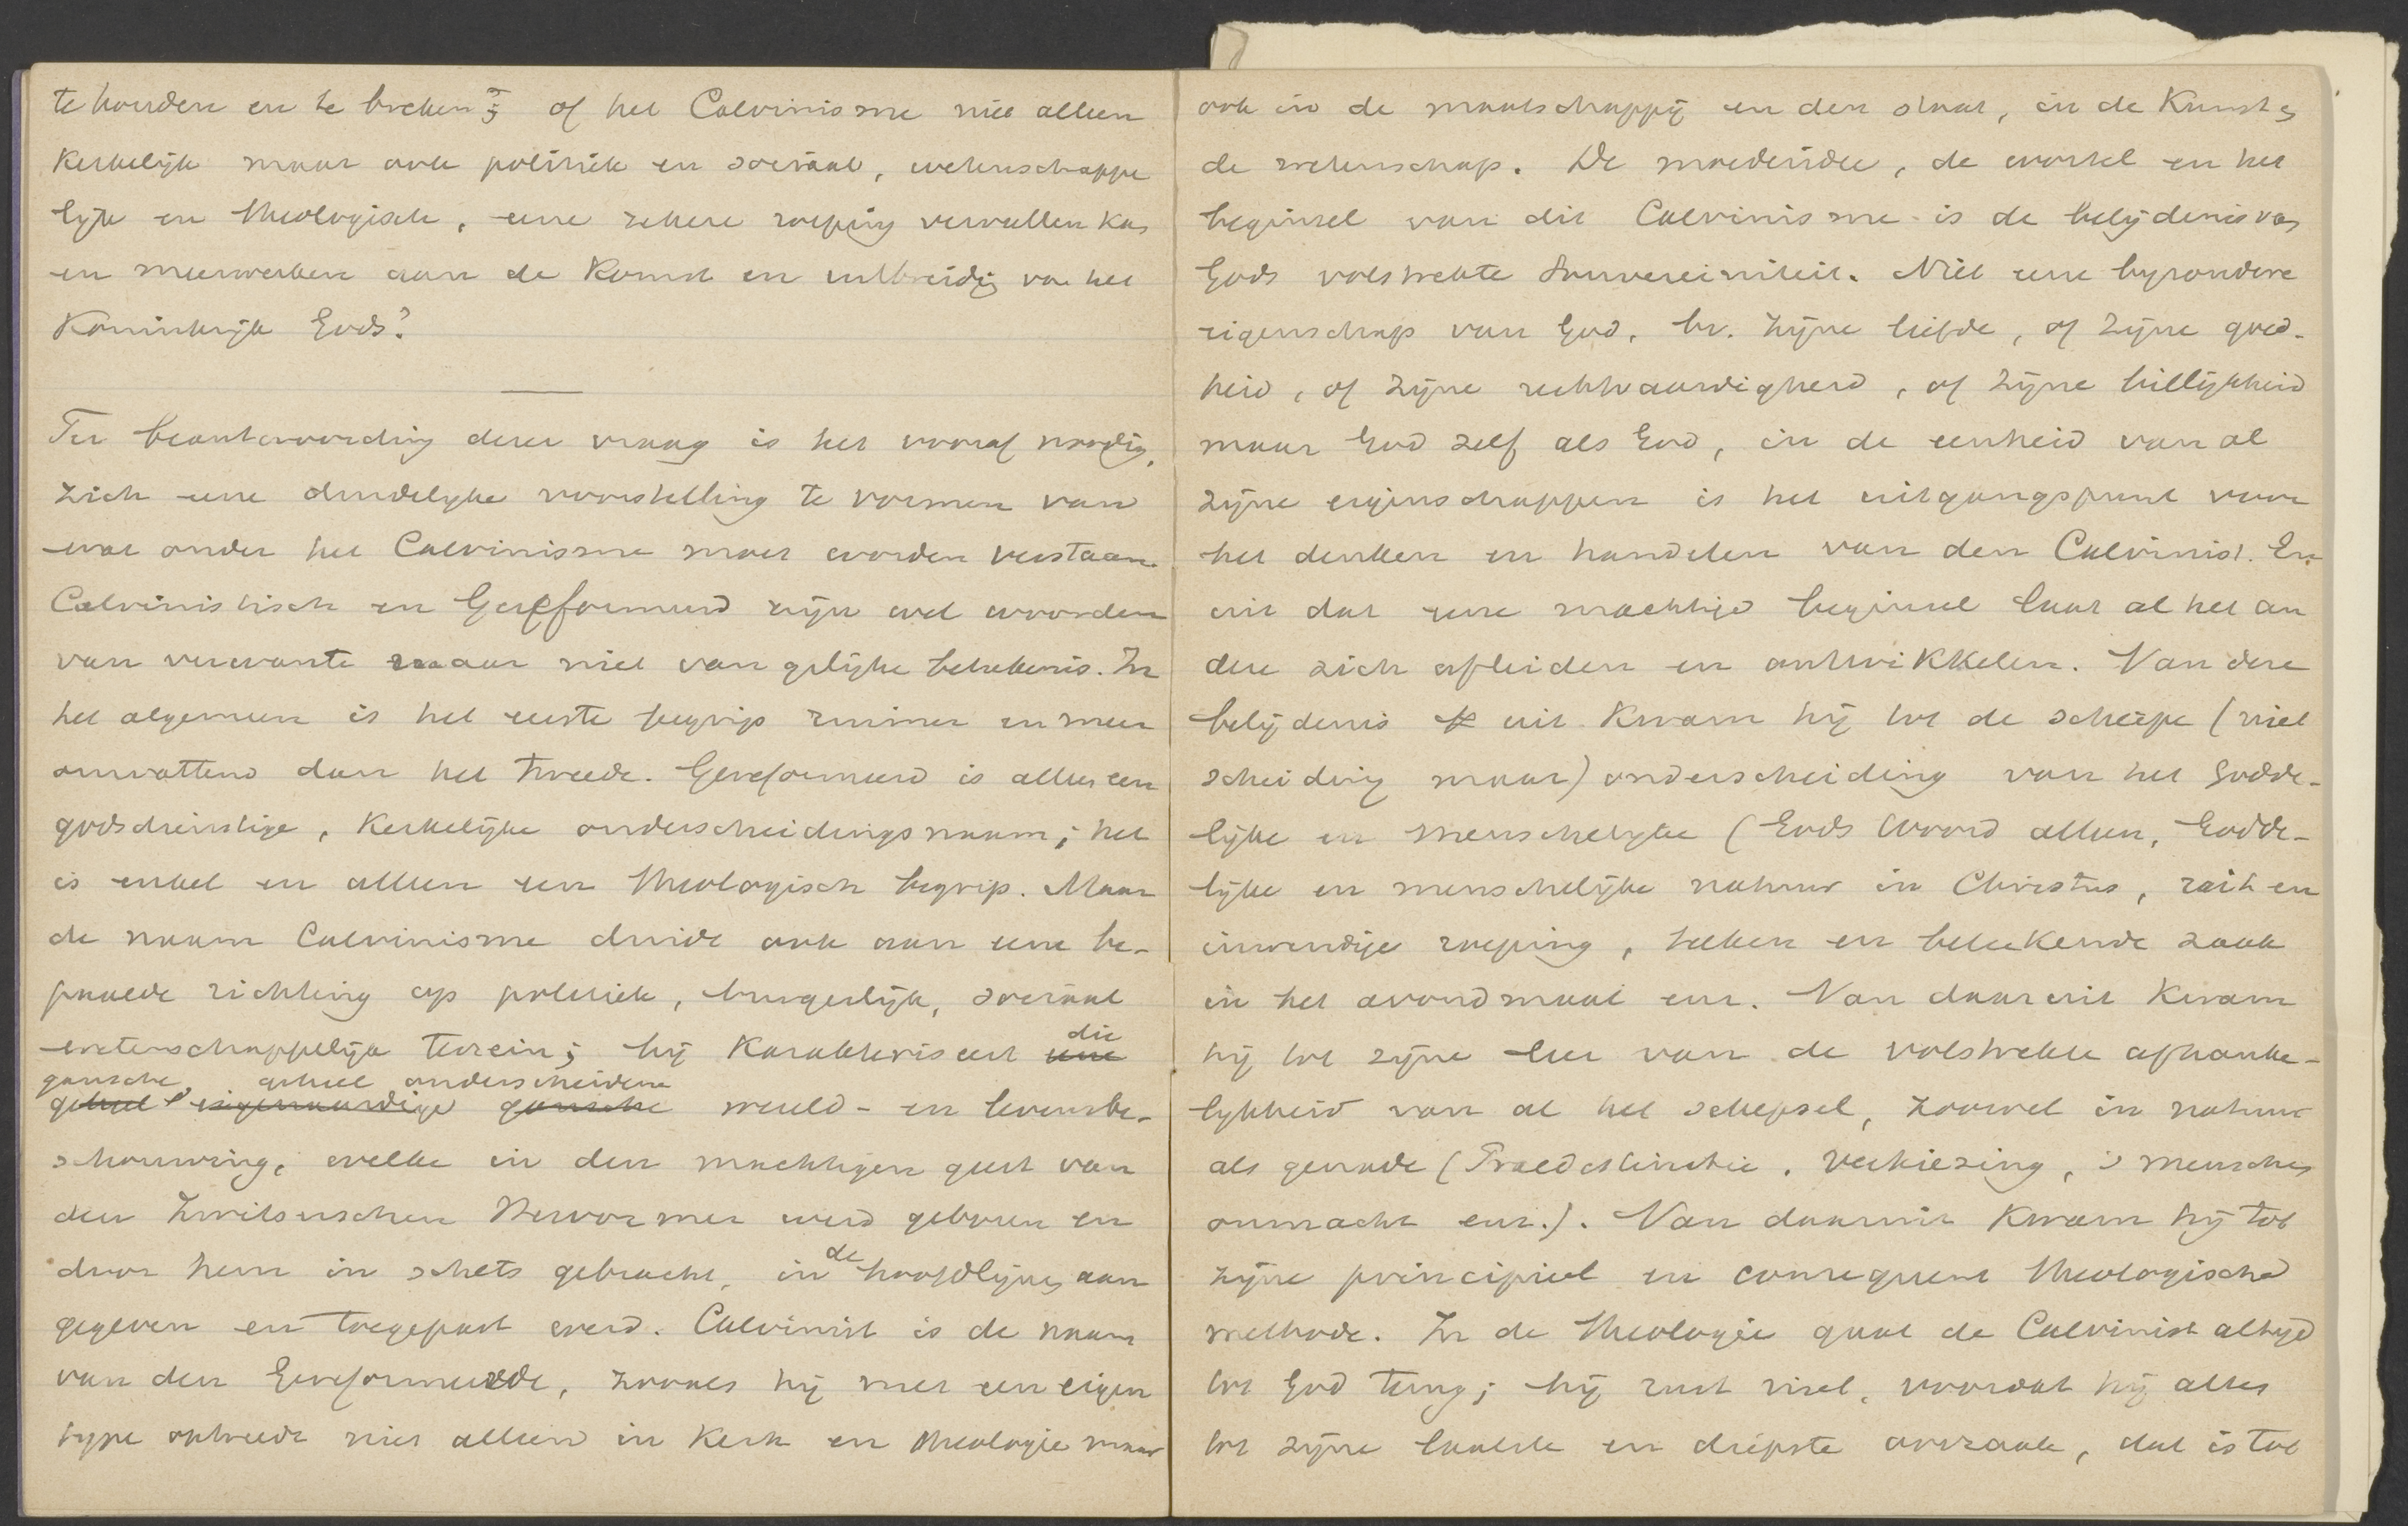 te houden en te breken; of het Calvinisme niet alleen
kerkelijk maar ook politiek en sociaal, wetenschappe
lijk en theologisch, eene zekere roeping vervullen kan
en meewerken aan de komst en uitbreidig van het
Koninkrijk Gods?
Ter beantwoording dezer vraag is het vooraf noodig,
zich eene duidelijke voorstelling te vormen van
wat onder het Calvinisme moet worden verstaan.
Calvinistisch en Gereformeerd zijn wel woorden
van verwante maar niet van gelijke beteekenis. In
het algemeen is het eerste begrip ruimer en meer
omvattend dan het tweede. Gereformeerd is alleen een
godsdienstige, kerkelijke onderscheidingsnaam; het
is enkel en alleen een theologisch begrip. Maar
de naam Calvinisme duidt ook aan eene be-
paalde richting op politiek, burgerlijk, sociaal
wetenschappelijk terrein; hij karakteriseert eene die
gansche, geheel onderscheidene
geheel eigenaardige gansche wereld- en levensbe-
schouwing, welke in den machtigen geest van
den Zwitserschen Hervormer werd geboren en
door hem in schets gebracht, in de hoofdlijnen aan
gegeven en toegepast werd. Calvinist is de naam
van den Gereformeerde, zooals hij met een eigen
type optreedt niet alleen in kerk en theologie maar
ook in de maatschappij en den staat, in de kunst en
de wetenschap. De moederidee, de wortel en het
beginsel van dit Calvinisme is de belijdenis van
Gods volstrekte souvereiniteit. Niet eene byzondere
eigenschap van God, bv. zijne liefde, of zijne goed-
heid, of zijne rechtvaardigheid, of zijne billijkheid
maar God zelf als God, in de eenheid van al
zijne eigenschappen is het uitgangspunt voor
het denken en handelen van den Calvinist. En
uit dat eene machtige beginsel laat al het an
dere zich afleiden en ontwikkelen. Van deze
belijdenis uit kwam hij tot de scherpe (niet
scheiding maar) onderscheiding van het Godde-
lijke en menschelyke (Gods Woord alleen, Godde-
lijke en menschelijke natuur in Christus, uit en
inwendige roeping, teeken en beteekende zaak
in het avondmaal enz. Van daar uit kwam
hij tot zijne leer van de volstrekte afhanke-
lykheid van al het schepsel, zoowel in natuur
als genade (Praedestinatie, Verkiezing, 's menschen
onmacht enz.). Van daaruit kwam hij tot
zijne principieel en consequent theologische
methode. In de theologie gaat de Calvinist altijd
tot God terug; hij rust niet, voordat hij alles
tot zijne laatste en diepste oorzaak, dat is tot